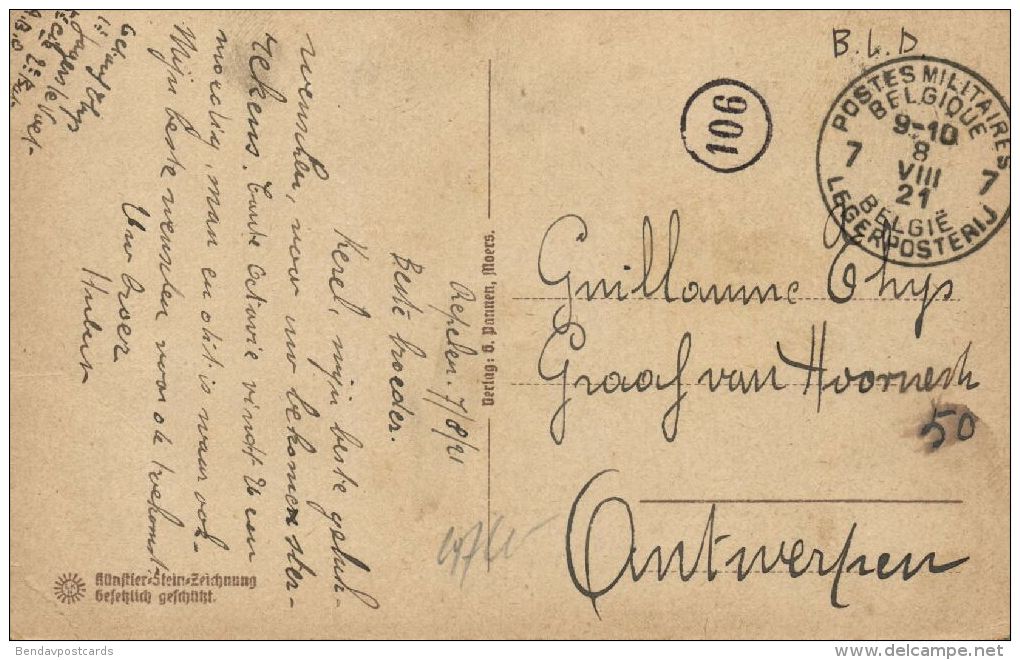 B.L.D
POSTES MILITAIRES
BELGIQUE
9-10
8
VIII
21
7 7
BELGIË
LEGERPOSTERIJ
106
Guillaume Thys
Graaf van Hoornestr
50
Antwerpen
Verlag: G. Pannen, Moers.
Repelen. 7/8/21
Beste broeder.
Kerel, mijn beste geluk-
wenschen, voor uw bekomen ster-
rekens. Tante Octavie vindt U een
moedig man en dit is waar ook.
Mijn beste wenschen voor de toekomst.
Uw broer
Hubert
Künstler-Stein-Zeichnung
Gesetzlich geschützt.
Bendavpostcards
delcampe.net